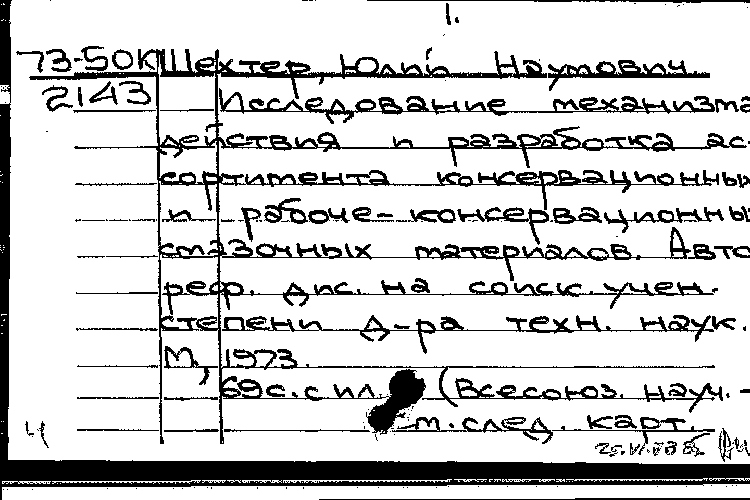 1.
73-50К Шехтер, Юлий Наумович
2143 Исследование механизма
действия и разработка ас-
сортимента консервационных
и рабоче-консервационных
смазочных материалов. Авто
реф. дис. на соиск. учен.
степени д-ра техн. наук.
М., 1973.
69с. с ил. (Всесоюз. науч.-
см. след. карт.